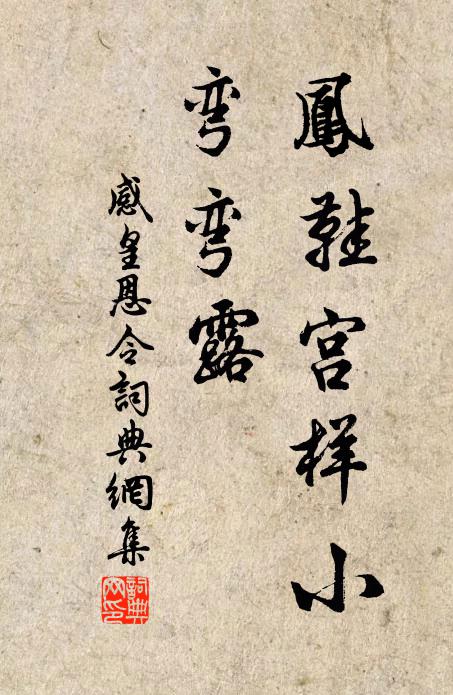 鳳鞋宫样小
弯弯露
感皇恩令詞典網集
詞典网印